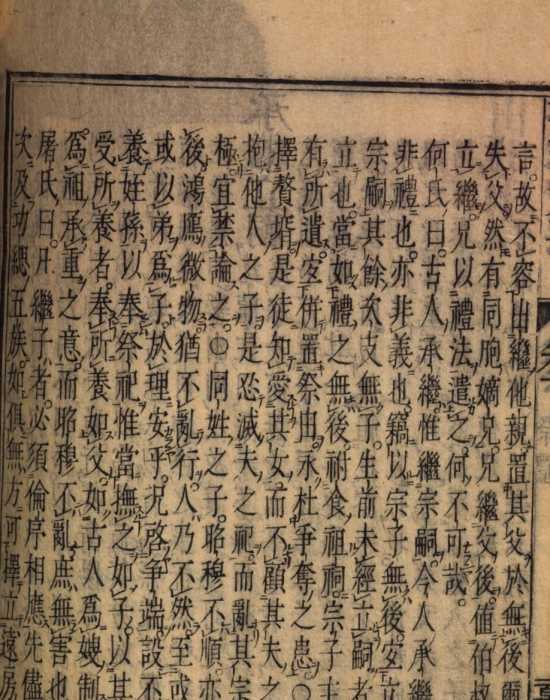 言。故不容出繼他親置其父於無後
失父然有同胞嫡兄兄繼父後値伯
立繼兄以禮法遣之何不可哉。
何氏曰。古人承繼惟繼宗嗣今人承繼
非禮也。亦非義也。籍以宗子無後。安立
宗嗣其餘次支無子。生前未經立嗣者
立也。當如禮之無後祔食祖祠。宗子主
有所遺安併置祭田永杜爭奪之患。○
擇贅壻是徒知愛其女。而不顧其夫之
抱他人之子是忍滅夫之祀而亂其宗
極宜禁論之。○同姓之子。昭穆不順。亦
後。鴻鴈微物。猶不亂行。人乃不然。至或
或以弟爲子。於理安乎。況啓爭端。設不
養姪孫以奉祭祀惟當撫之如子。以其
受所養者。奉所養如父。如古人爲嫂制
爲祖承重之意。而昭穆不亂。庶無害也
屠氏曰。凡繼子者。必須倫序相應先儘
次及功緦五族。如俱無方可擇立遠房